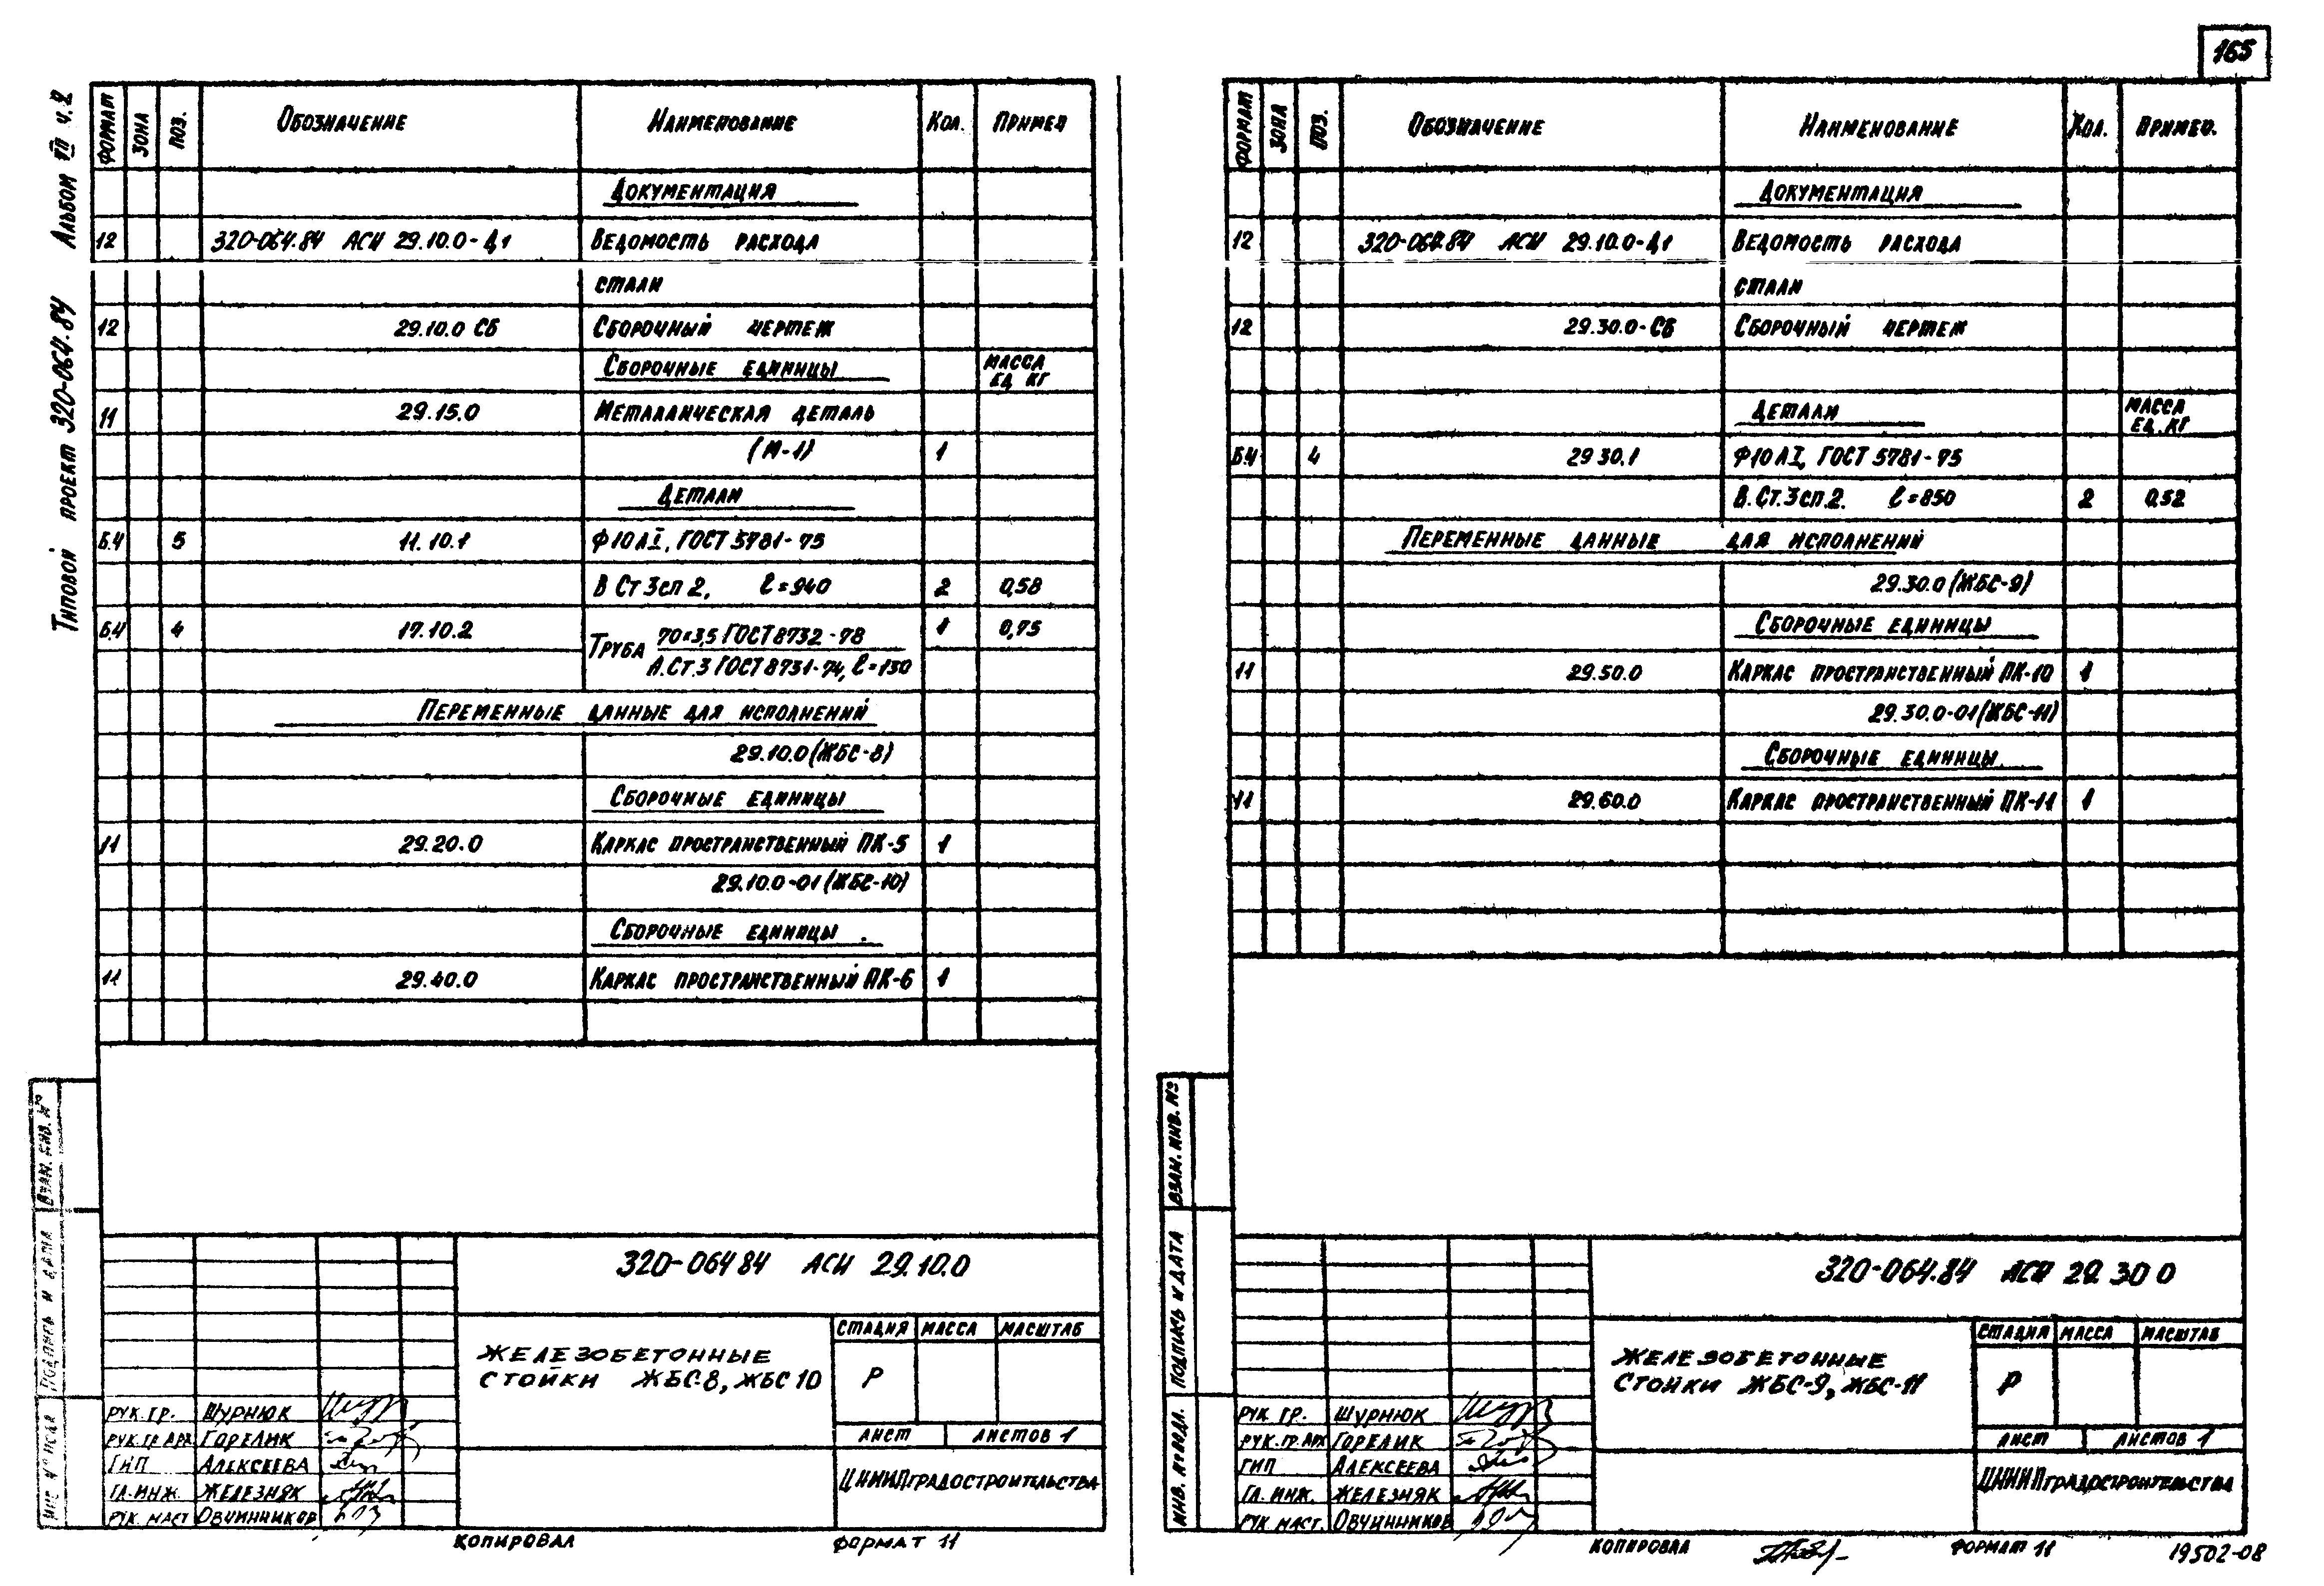 165
Альбом VII ч.2
Типовой проект 320-064.84
Формат Зона Поз. Обозначение Наименование Кол. Примеч
Документация
12 320-064.84 АСИ 29.10.0-Д1 Ведомость расхода
стали
12 29.10.0 СБ Сборочный чертеж
Сборочные единицы масса ед кг
11 29.15.0 Металлическая деталь
(М-1) 1
Детали
Б.4 5 11.10.1 Ф10АI, ГОСТ 5781-75
В Ст 3сп 2, l=940 2 0,58
Б.4 4 17.10.2 Труба 70×3,5 ГОСТ 8732-78 1 0,75
А.Ст.3 ГОСТ 8731-74, l=130
Переменные данные для исполнений
29.10.0 (ЖБС-8)
Сборочные единицы
11 29.20.0 Каркас пространственный ПК-5 1
29.10.0-01 (ЖБС-10)
Сборочные единицы.
11 29.40.0 Каркас пространственный ПК-6 1
Взам. инв. №
Подпись и дата
Инв № подл
320-064 84 АСИ 29.10.0
Железобетонные
стойки ЖБС-8, ЖБС 10
Стадия Масса Масштаб
Р
Лист Листов 1
ЦНИИПградостроительства
Рук. гр. Шурнюк
Рук. гр арх Горелик
ГИП Алексеева
Гл. инж. Железняк
Рук. маст Овчинников
Копировал Формат 11
Формат Зона Поз. Обозначение Наименование Кол. Примеч.
Документация
12 320-064.84 АСИ 29.10.0-Д1 Ведомость расхода
стали
12 29.30.0-СБ Сборочный чертеж
Детали масса ед. кг
Б.4 4 29 30.1 Ф10АI, ГОСТ 5781-75
В. Ст. 3 сп. 2. l=850 2 0,52
Переменные данные для исполнений
29.30.0 (ЖБС-9)
Сборочные единицы
11 29.50.0 Каркас пространственный ПК-10 1
29.30.0-01 (ЖБС-11)
Сборочные единицы.
11 29.60.0 Каркас пространственный ПК-11 1
Взам. инв. №
Подпись и дата
Инв. № подл.
320-064.84 АСИ 29 30 0
Железобетонные
стойки ЖБС-9, ЖБС-11
Стадия Масса Масштаб
Р
Лист Листов 1
ЦНИИПградостроительства
Рук гр. Шурнюк
Рук. гр. арх Горелик
ГИП Алексеева
Гл. инж. Железняк
Рук маст. Овчинников
Копировал Формат 11
19502-08